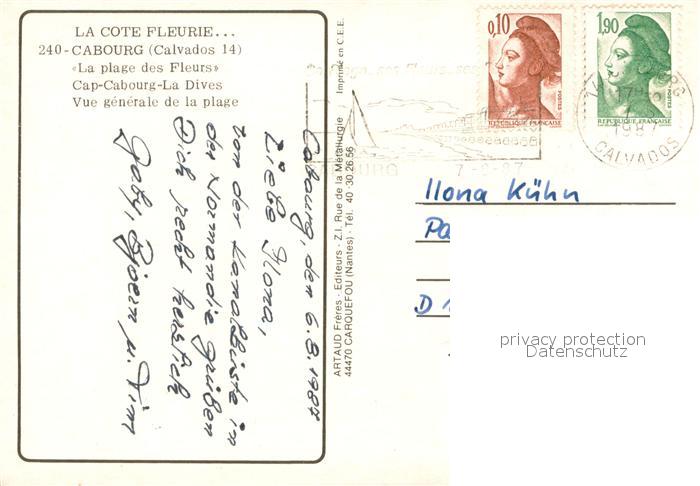 LA COTE FLEURIE...
240-CABOURG (Calvados 14)
«La plage des Fleurs»
Cap-Cabourg-La Dives
Vue générale de la plage
Cabourg, den 6.8.1987
Liebe Ilona,
von der Kanalküste in
der Normandie grüßen
Dich recht herzlich
Gaby, Bjoern u. Tim
ARTAUD Frères - Editeurs - Z.I. Rue de la Métallurgie
44470 CARQUEFOU (Nantes) - Tél. 40-30.26.56
Imprimé en C.E.E.
0,10
POSTES
REPUBLIQUE FRANÇAISE
1,90
POSTES
REPUBLIQUE FRANÇAISE
CABOURG
17H
1987
CALVADOS
Ilona Kühn
Pa
D 1
privacy protection
Datenschutz